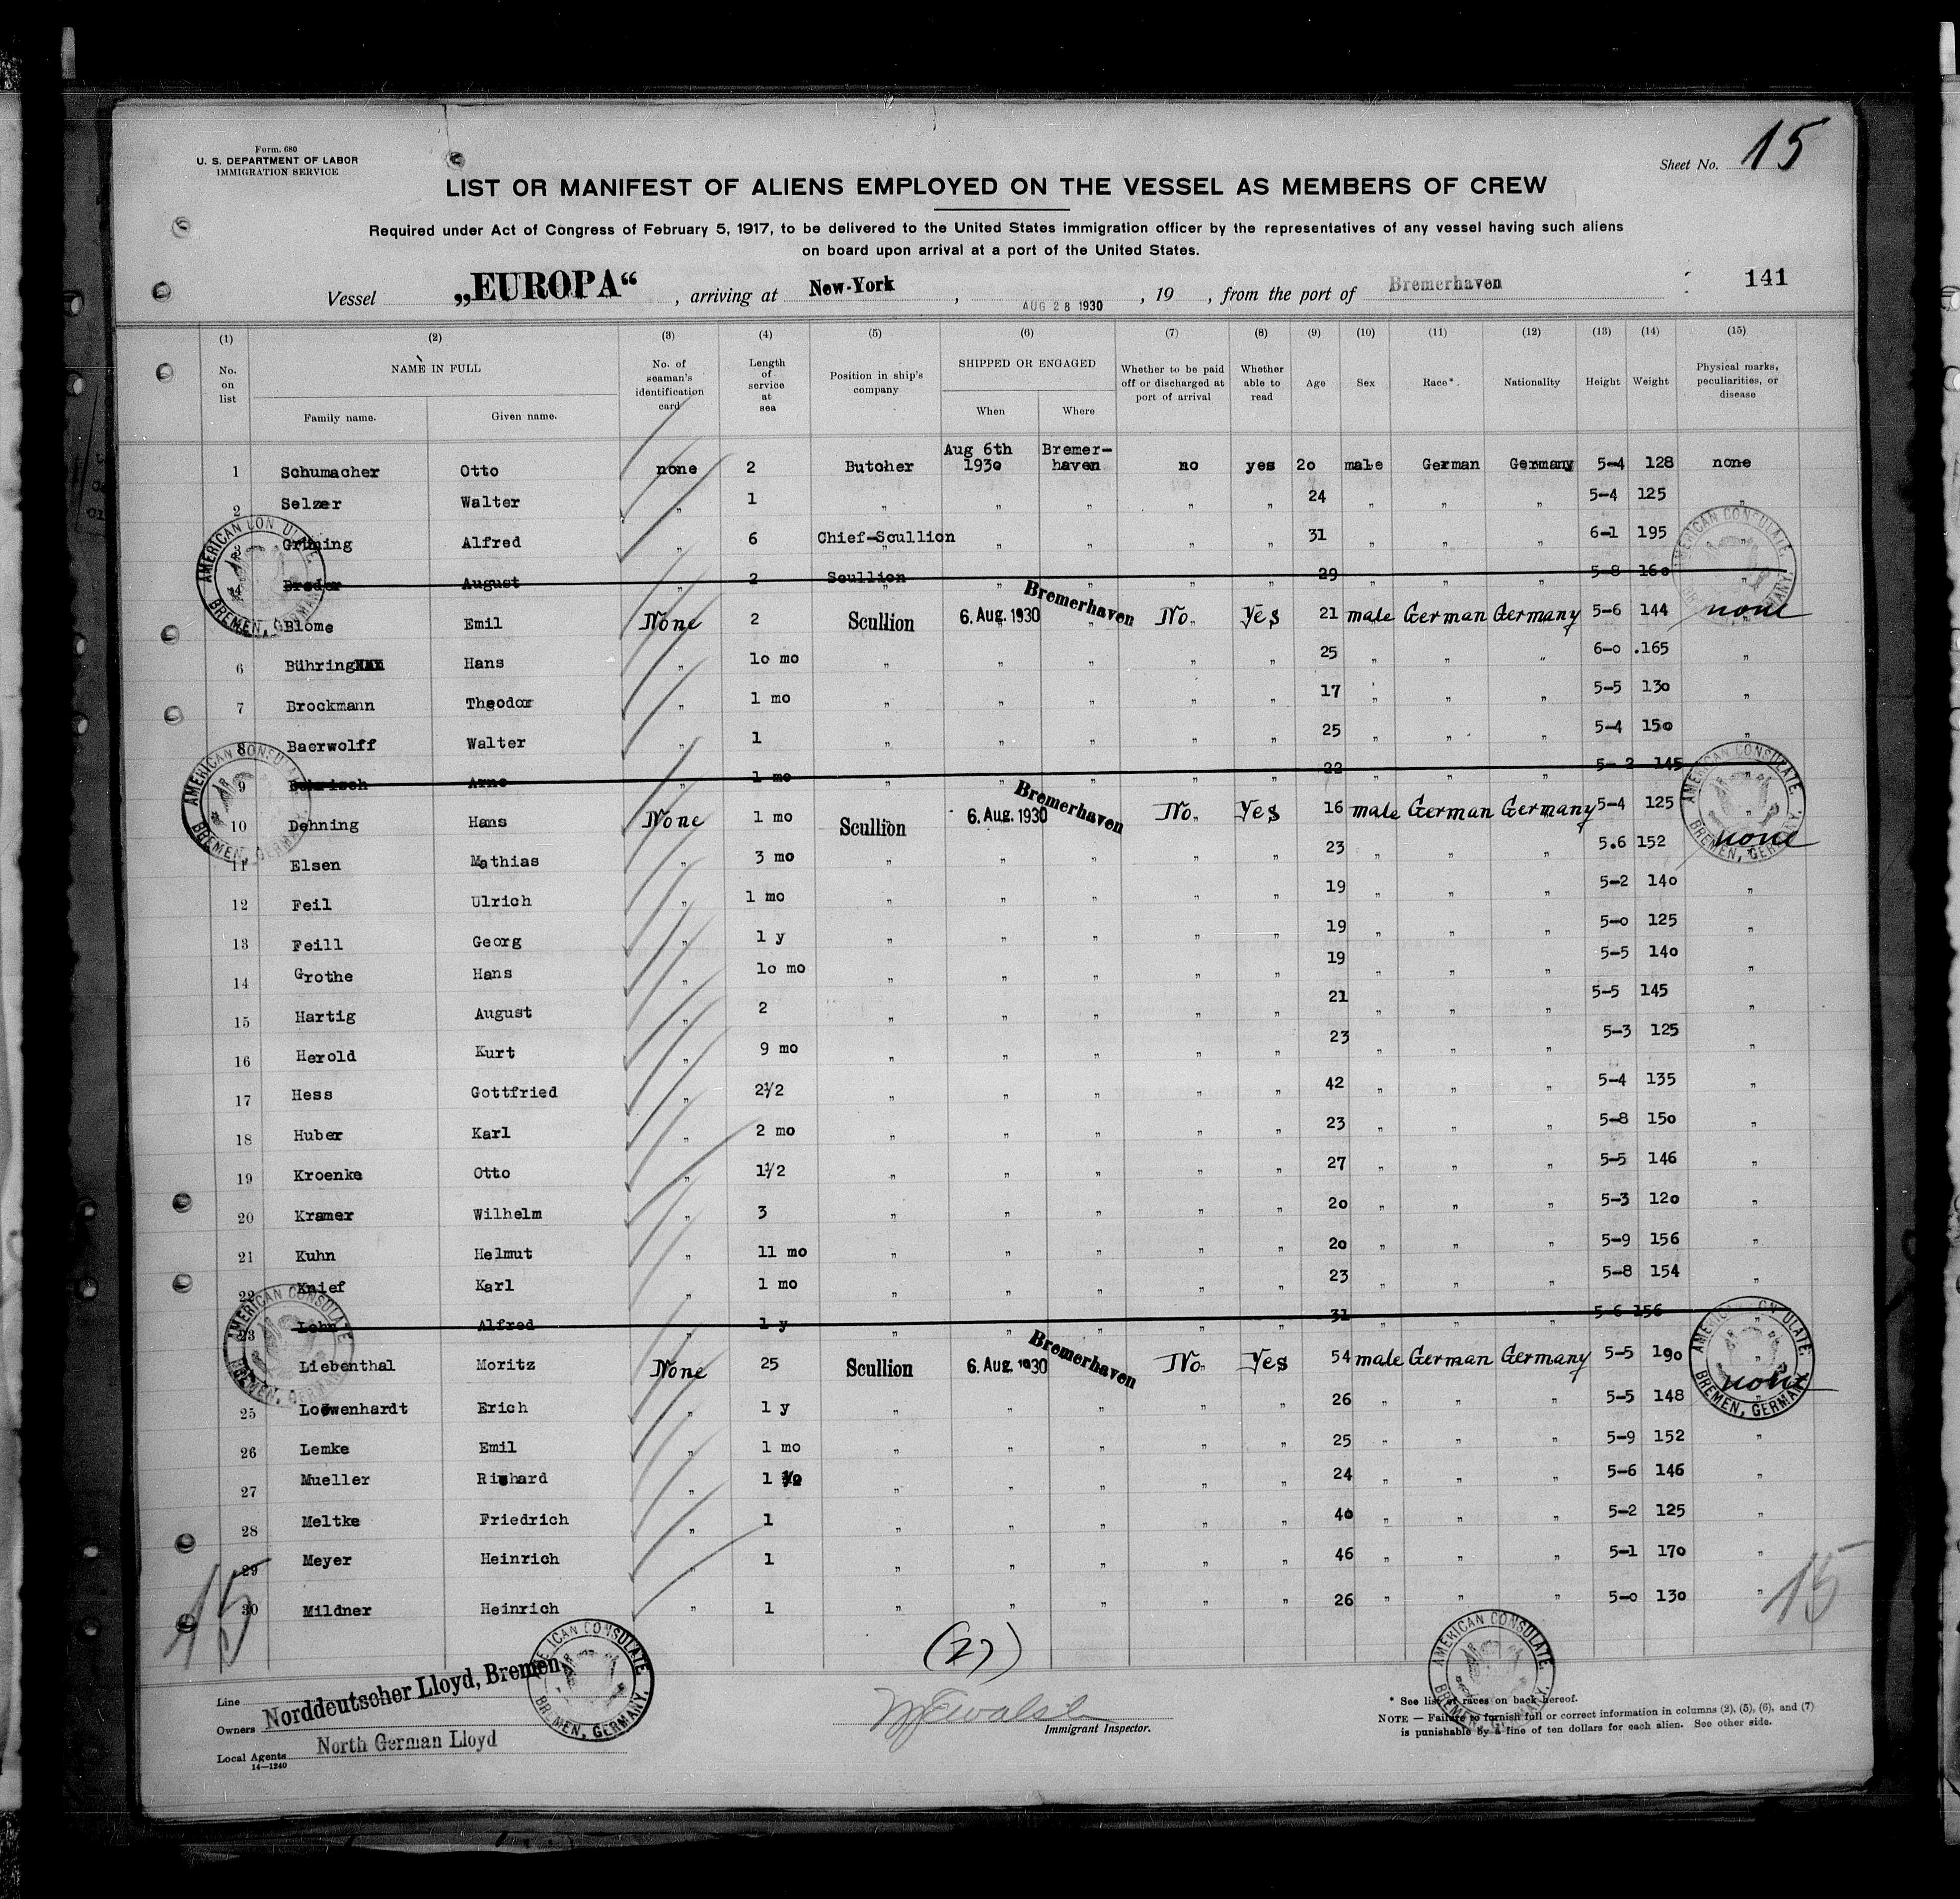 Form. 680
U. S. DEPARTMENT OF LABOR
IMMIGRATION SERVICE
Sheet No. 15
LIST OR MANIFEST OF ALIENS EMPLOYED ON THE VESSEL AS MEMBERS OF CREW
Required under Act of Congress of February 5, 1917, to be delivered to the United States immigration officer by the representatives of any vessel having such aliens
on board upon arrival at a port of the United States.
Vessel „EUROPA“ , arriving at New-York , AUG 28 1930 , 19 , from the port of Bremerhaven 141
(1) (2) (3) (4) (5) (6) (7) (8) (9) (10) (11) (12) (13) (14) (15)
No. on list NAME IN FULL Family name. Given name. No. of seaman's identification card Length of service at sea Position in ship's company SHIPPED OR ENGAGED When Where Whether to be paid off or discharged at port of arrival Whether able to read Age Sex Race* Nationality Height Weight Physical marks, peculiarities, or disease
1 Schumacher Otto none 2 Butcher Aug 6th 1930 Bremer-haven no yes 20 male German Germany 5-4 128 none
2 Selzer Walter „ 1 „ „ „ „ „ 24 „ „ „ 5-4 125 „
3 Grüning Alfred „ 6 Chief-Scullion „ „ „ „ 31 „ „ „ 6-1 195 „
4 Breder August „ 2 Scullion „ „ „ „ 29 „ „ „ 5-8 160 „
Blome Emil None 2 Scullion 6. Aug. 1930 Bremerhaven No Yes 21 male German Germany 5-6 144 none
6 Bühring Hans „ 10 mo „ „ „ „ „ 25 „ „ „ 6-0 .165 „
7 Brockmann Theodor „ 1 mo „ „ „ „ „ 17 „ „ „ 5-5 130 „
8 Baerwolff Walter „ 1 „ „ „ „ „ 25 „ „ „ 5-4 150 „
9 Arno „ 1 mo „ „ „ „ „ 22 „ „ „ 5-2 145 „
10 Dehning Hans None 1 mo Scullion 6. Aug. 1930 Bremerhaven No Yes 16 male German Germany 5-4 125 none
11 Elsen Mathias „ 3 mo „ „ „ „ „ 23 „ „ „ 5.6 152 „
12 Feil Ulrich „ 1 mo „ „ „ „ „ 19 „ „ „ 5-2 140 „
13 Feill Georg „ 1 y „ „ „ „ „ 19 „ „ „ 5-0 125 „
14 Grothe Hans „ 10 mo „ „ „ „ „ 19 „ „ „ 5-5 140 „
15 Hartig August „ 2 „ „ „ „ „ 21 „ „ „ 5-5 145 „
16 Herold Kurt „ 9 mo „ „ „ „ „ 23 „ „ „ 5-3 125 „
17 Hess Gottfried „ 2½ „ „ „ „ „ 42 „ „ „ 5-4 135 „
18 Huber Karl „ 2 mo „ „ „ „ „ 23 „ „ „ 5-8 150 „
19 Kroenke Otto „ 1½ „ „ „ „ „ 27 „ „ „ 5-5 146 „
20 Kramer Wilhelm „ 3 „ „ „ „ „ 20 „ „ „ 5-3 120 „
21 Kuhn Helmut „ 11 mo „ „ „ „ „ 20 „ „ „ 5-9 156 „
22 Knief Karl „ 1 mo „ „ „ „ „ 23 „ „ „ 5-8 154 „
23 Lehr Alfred „ 1 y „ „ „ „ „ 31 „ „ „ 5-6 156 „
Liebenthal Moritz None 25 Scullion 6. Aug. 1930 Bremerhaven No Yes 54 male German Germany 5-5 190 none
25 Loewenhardt Erich „ 1 y „ „ „ „ „ 26 „ „ „ 5-5 148 „
26 Lemke Emil „ 1 mo „ „ „ „ „ 25 „ „ „ 5-9 152 „
27 Mueller Richard „ 1 ½ „ „ „ „ „ 24 „ „ „ 5-6 146 „
28 Meltke Friedrich „ 1 „ „ „ „ „ 40 „ „ „ 5-2 125 „
29 Meyer Heinrich „ 1 „ „ „ „ „ 46 „ „ „ 5-1 170 „
30 Mildner Heinrich „ 1 „ „ „ „ „ 26 „ „ „ 5-0 130 „
15 15
(27)
AMERICAN CONSULATE, BREMEN, GERMANY.
AMERICAN CONSULATE, BREMEN, GERMANY.
AMERICAN CONSULATE, BREMEN, GERMANY.
AMERICAN CONSULATE, BREMEN, GERMANY.
AMERICAN CONSULATE, BREMEN, GERMANY.
AMERICAN CONSULATE, BREMEN, GERMANY.
AMERICAN CONSULATE, BREMEN, GERMANY.
AMERICAN CONSULATE, BREMEN, GERMANY.
Line
Owners Norddeutscher Lloyd, Bremen
Local Agents North German Lloyd
14—1240
Immigrant Inspector.
* See list of races on back hereof.
NOTE — Failure to furnish full or correct information in columns (2), (5), (6), and (7)
is punishable by a fine of ten dollars for each alien. See other side.